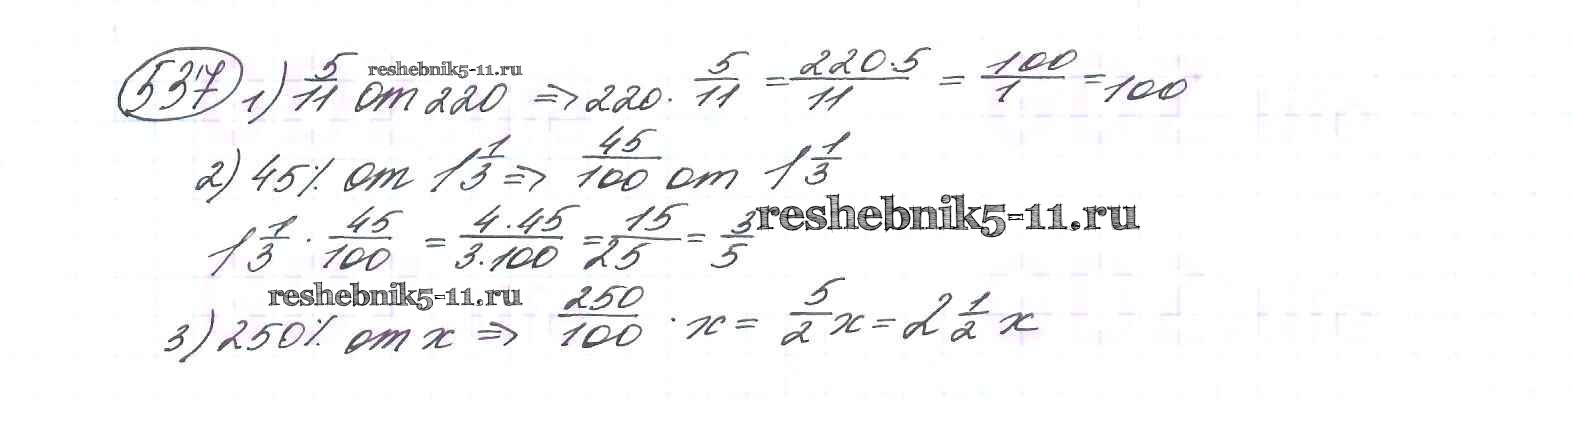 537 1) 5/11 от 220 ⇒ 220 · 5/11 = 220·5/11 = 100/1 = 100
reshebnik5-11.ru
2) 45% от 1 1/3 ⇒ 45/100 от 1 1/3
1 1/3 · 45/100 = 4·45/3·100 = 15/25 = 3/5
reshebnik5-11.ru
reshebnik5-11.ru
3) 250% от x ⇒ 250/100 · x = 5/2 x = 2 1/2 x